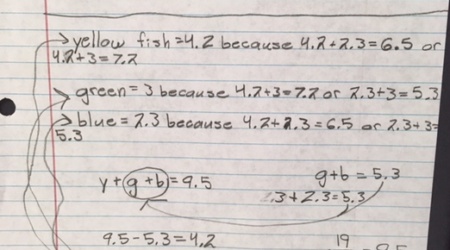 → yellow fish = 4.2 because 4.2+2.3=6.5 or
4.2+3=7.2
→ green = 3 because 4.2+3=7.2 or 2.3+3=5.3
→ blue = 2.3 because 4.2+2.3=6.5 or 2.3+3=
5.3
y+(g+b)=9.5
g+b=5.3
.3+2.3=5.3
9.5-5.3=4.2
19